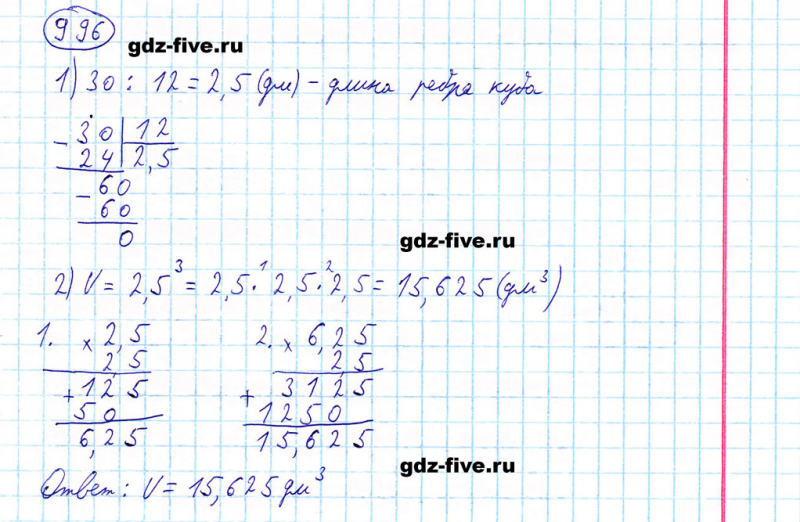 996
gdz-five.ru
1) 30 : 12 = 2,5 (дм) - длина ребра куба
- 30 | 12
24 | 2,5
- 60
60
0
gdz-five.ru
2) V = 2,5³ = 2,5 ·¹ 2,5 ·² 2,5 = 15,625 (дм³)
1. × 2,5
2,5
+ 125
50
6,25
2. × 6,25
2,5
+ 3125
1250
15,625
gdz-five.ru
Ответ: V = 15,625 дм³